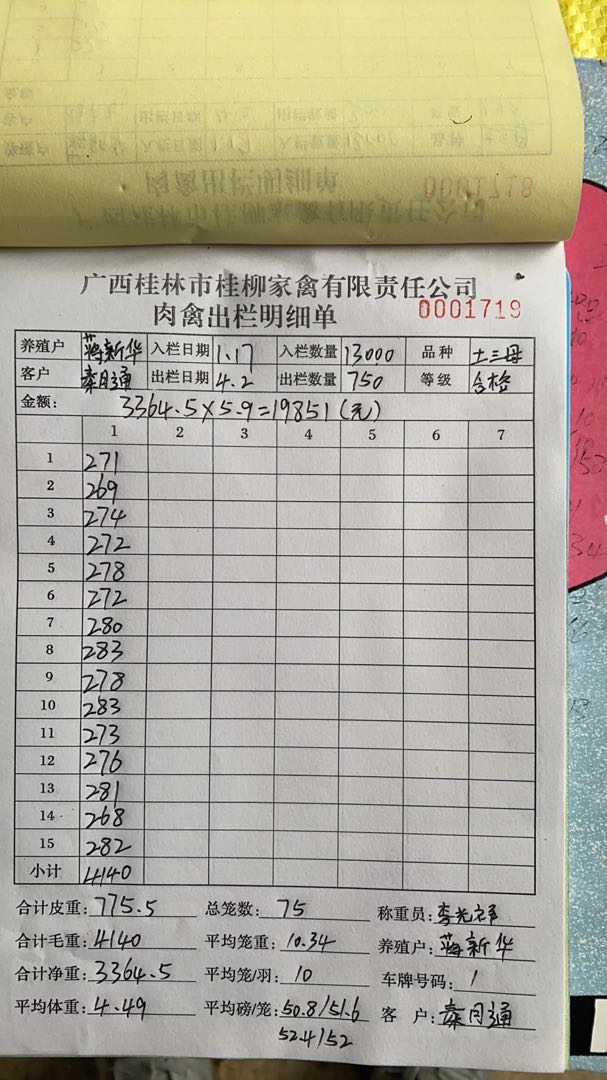 广西桂林市桂柳家禽有限责任公司
肉禽出栏明细单 0001719
养殖户 蒋新华 入栏日期 1.17 入栏数量 13000 品种 土三母
客户 秦月通 出栏日期 4.2 出栏数量 750 等级 合格
金额: 3364.5×5.9=19851(元)
1 2 3 4 5 6 7
1 271
2 269
3 274
4 272
5 278
6 272
7 280
8 283
9 278
10 283
11 273
12 276
13 281
14 268
15 282
小计 4140
合计皮重: 775.5 总笼数: 75 称重员: 李光祥
合计毛重: 4140 平均笼重: 10.34 养殖户: 蒋新华
合计净重: 3364.5 平均笼/羽: 10 车牌号码: /
平均体重: 4.49 平均磅/笼: 50.8/51.6 客 户: 秦月通
52.4/52